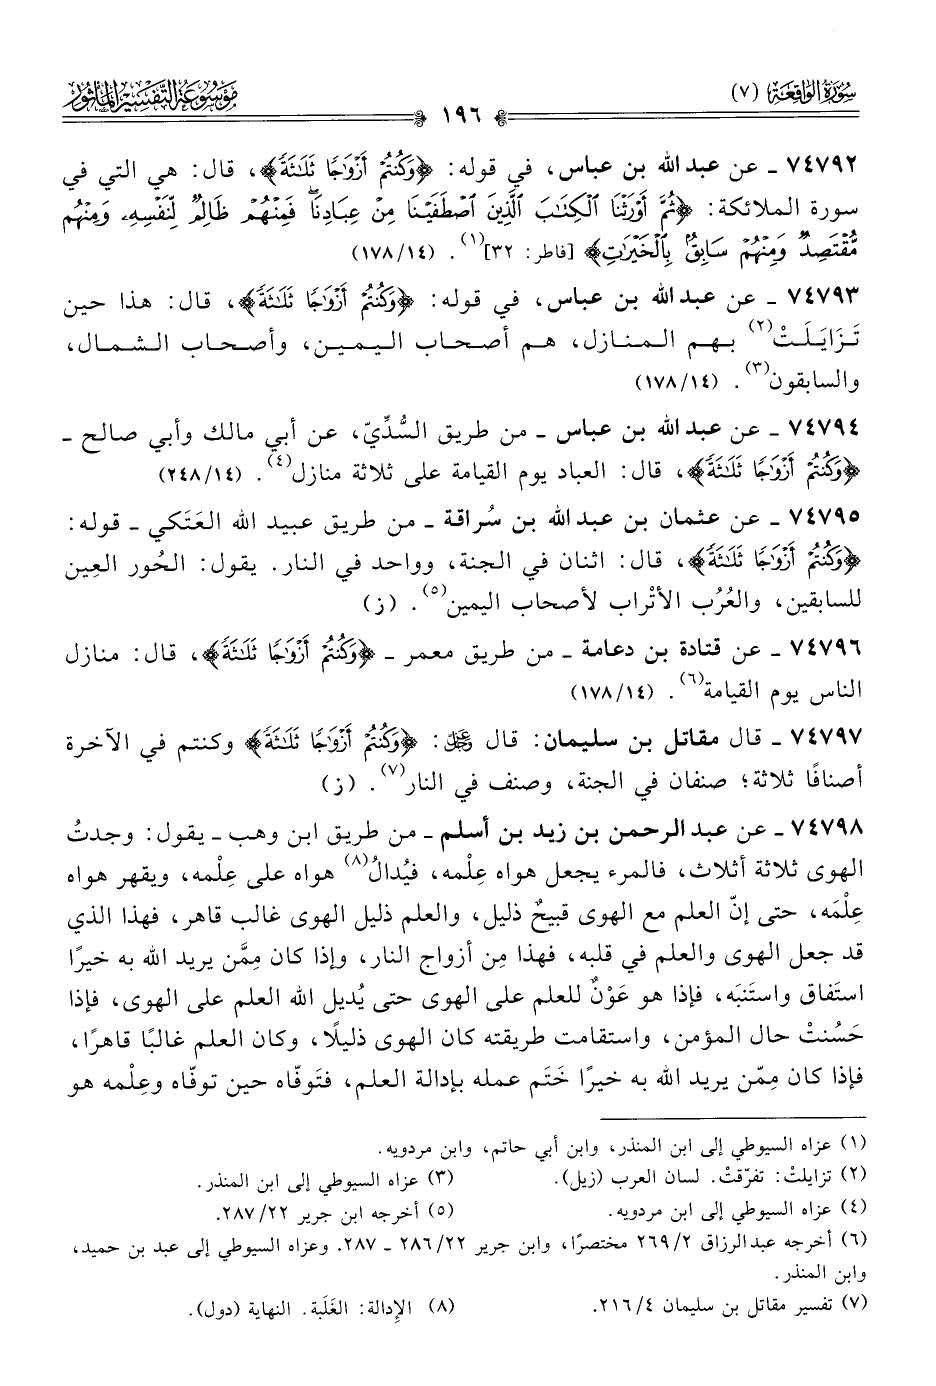 سُورَةُ الوَاقِعَة (٧)
١٩٦
مَوْسُوعَة التَّفْسِير المَأْثُور
٧٤٧٩٢ ـ عن عبد الله بن عباس، في قوله: ﴿وَكُنتُمْ أَزْوَٰجًا ثَلَـٰثَةً﴾، قال: هي التي في
سورة الملائكة: ﴿ثُمَّ أَوْرَثْنَا ٱلْكِتَـٰبَ ٱلَّذِينَ ٱصْطَفَيْنَا مِنْ عِبَادِنَاۖ فَمِنْهُمْ ظَالِمٌ لِّنَفْسِهِۦ وَمِنْهُم
مُّقْتَصِدٌ وَمِنْهُمْ سَابِقٌۢ بِٱلْخَيْرَٰتِ﴾ [فاطر: ٣٢](١). (١٤/ ١٧٨)
٧٤٧٩٣ ـ عن عبد الله بن عباس، في قوله: ﴿وَكُنتُمْ أَزْوَٰجًا ثَلَـٰثَةً﴾، قال: هذا حين
تَزَايَلَتْ(٢) بهم المنازل، هم أصحاب اليمين، وأصحاب الشمال،
والسابقون(٣). (١٤/ ١٧٨)
٧٤٧٩٤ ـ عن عبد الله بن عباس ـ من طريق السُّدِّيّ، عن أبي مالك وأبي صالح ـ
﴿وَكُنتُمْ أَزْوَٰجًا ثَلَـٰثَةً﴾، قال: العباد يوم القيامة على ثلاثة منازل(٤). (١٤/ ٢٤٨)
٧٤٧٩٥ ـ عن عثمان بن عبد الله بن سُراقة ـ من طريق عبيد الله العَتَكي ـ قوله:
﴿وَكُنتُمْ أَزْوَٰجًا ثَلَـٰثَةً﴾، قال: اثنان في الجنة، وواحد في النار. يقول: الحُور العِين
للسابقين، والعُرُب الأتْراب لأصحاب اليمين(٥). (ز)
٧٤٧٩٦ ـ عن قتادة بن دعامة ـ من طريق معمر ـ ﴿وَكُنتُمْ أَزْوَٰجًا ثَلَـٰثَةً﴾، قال: منازل
الناس يوم القيامة(٦). (١٤/ ١٧٨)
٧٤٧٩٧ ـ قال مقاتل بن سليمان: قال ﷿: ﴿وَكُنتُمْ أَزْوَٰجًا ثَلَـٰثَةً﴾ وكنتم في الآخرة
أصنافًا ثلاثة؛ صنفان في الجنة، وصنف في النار(٧). (ز)
٧٤٧٩٨ ـ عن عبد الرحمن بن زيد بن أسلم ـ من طريق ابن وهب ـ يقول: وجدتُ
الهوى ثلاثة أثلاث، فالمرء يجعل هواه عِلْمه، فيُدالُ(٨) هواه على عِلْمه، ويقهر هواه
عِلْمَه، حتى إنّ العلم مع الهوى قبيحٌ ذليل، والعلم ذليل الهوى غالب قاهر، فهذا الذي
قد جعل الهوى والعلم في قلبه، فهذا مِن أزواج النار، وإذا كان مِمَّن يريد الله به خيرًا
استَفاق واستَنبَه، فإذا هو عَوْنٌ للعلم على الهوى حتى يُديل الله العلم على الهوى، فإذا
حَسُنتْ حال المؤمن، واستقامت طريقته كان الهوى ذليلًا، وكان العلم غالبًا قاهرًا،
فإذا كان مِمّن يريد الله به خيرًا خَتَم عمله بإدالة العلم، فتَوفّاه حين توفّاه وعِلْمه هو
(١) عزاه السيوطي إلى ابن المنذر، وابن أبي حاتم، وابن مردويه.
(٢) تزايلتْ: تفرّقتْ. لسان العرب (زيل). (٣) عزاه السيوطي إلى ابن المنذر.
(٤) عزاه السيوطي إلى ابن مردويه. (٥) أخرجه ابن جرير ٢٢/ ٢٨٧.
(٦) أخرجه عبدالرزاق ٢/ ٢٦٩ مختصرًا، وابن جرير ٢٢/ ٢٨٦ ـ ٢٨٧. وعزاه السيوطي إلى عبد بن حميد،
وابن المنذر.
(٧) تفسير مقاتل بن سليمان ٤/ ٢١٦. (٨) الإدالة: الغَلَبة. النهاية (دول).